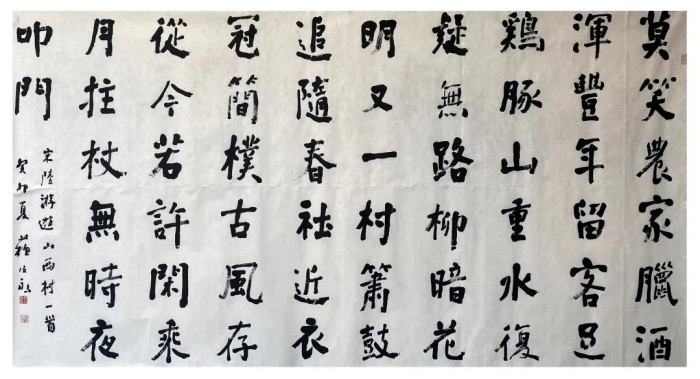 莫笑農家臘酒
渾豐年留客足
鷄豚山重水復
疑無路柳暗花
明又一村簫鼓
追隨春社近衣
冠簡樸古風存
從今若許閑乘
月拄杖無時夜
叩門
宋陸游遊山西村一首
癸卯夏